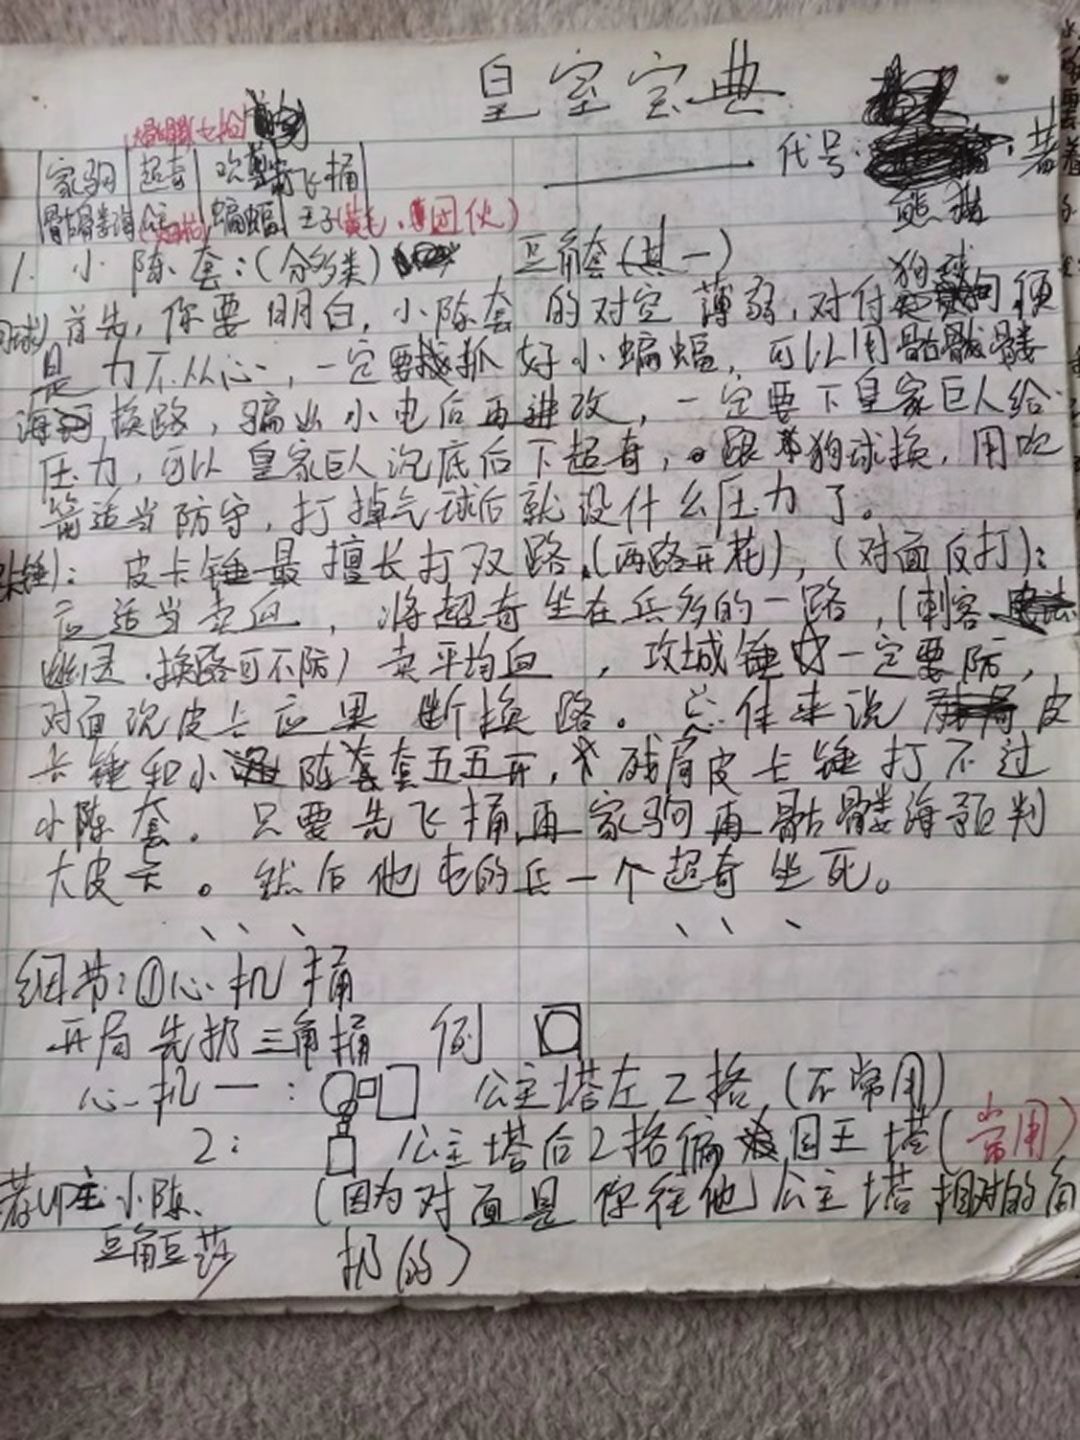 皇室宝典
——— 代号: 熊猫 著
家驹 超奇 吹箭 飞桶
骷髅海 蝙蝠 王子(黄毛,团伙)
1. 小陈套:(分多类) 豆角套(其一)
首先,你要明白,小陈套的对空薄弱,对付狗球便
是力不从心,一定要抓好小蝙蝠,可以用骷髅
海换路,骗出小电后再进攻,一定要下皇家巨人给
压力,可以皇家巨人沉底后下超奇,跟狗球换,用吹
箭适当防守,打掉气球后就没什么压力了。
皮卡锤最擅长打双路(两路开花),(对面反打):
应适当卖血,将超奇坐在兵多的一路,(刺客
幽灵,换路可不防)卖平均血,攻城锤一定要防,
对面沉皮卡应果断换路。总体来说皮
卡锤和小陈套五五开,残局皮卡锤打不过
小陈套。只要先飞桶再家驹再骷髅海预判
大皮卡。然后他屯的兵一个超奇坐死。
、、、 、、、
细节:①心机桶
开局先扔三角桶 例
心机一: 公主塔左2格(不常用)
2: 公主塔后2格偏国王塔(常用)
荐UP主小陈、(因为对面是你往他公主塔相对的角
豆角豆莎 扔的)